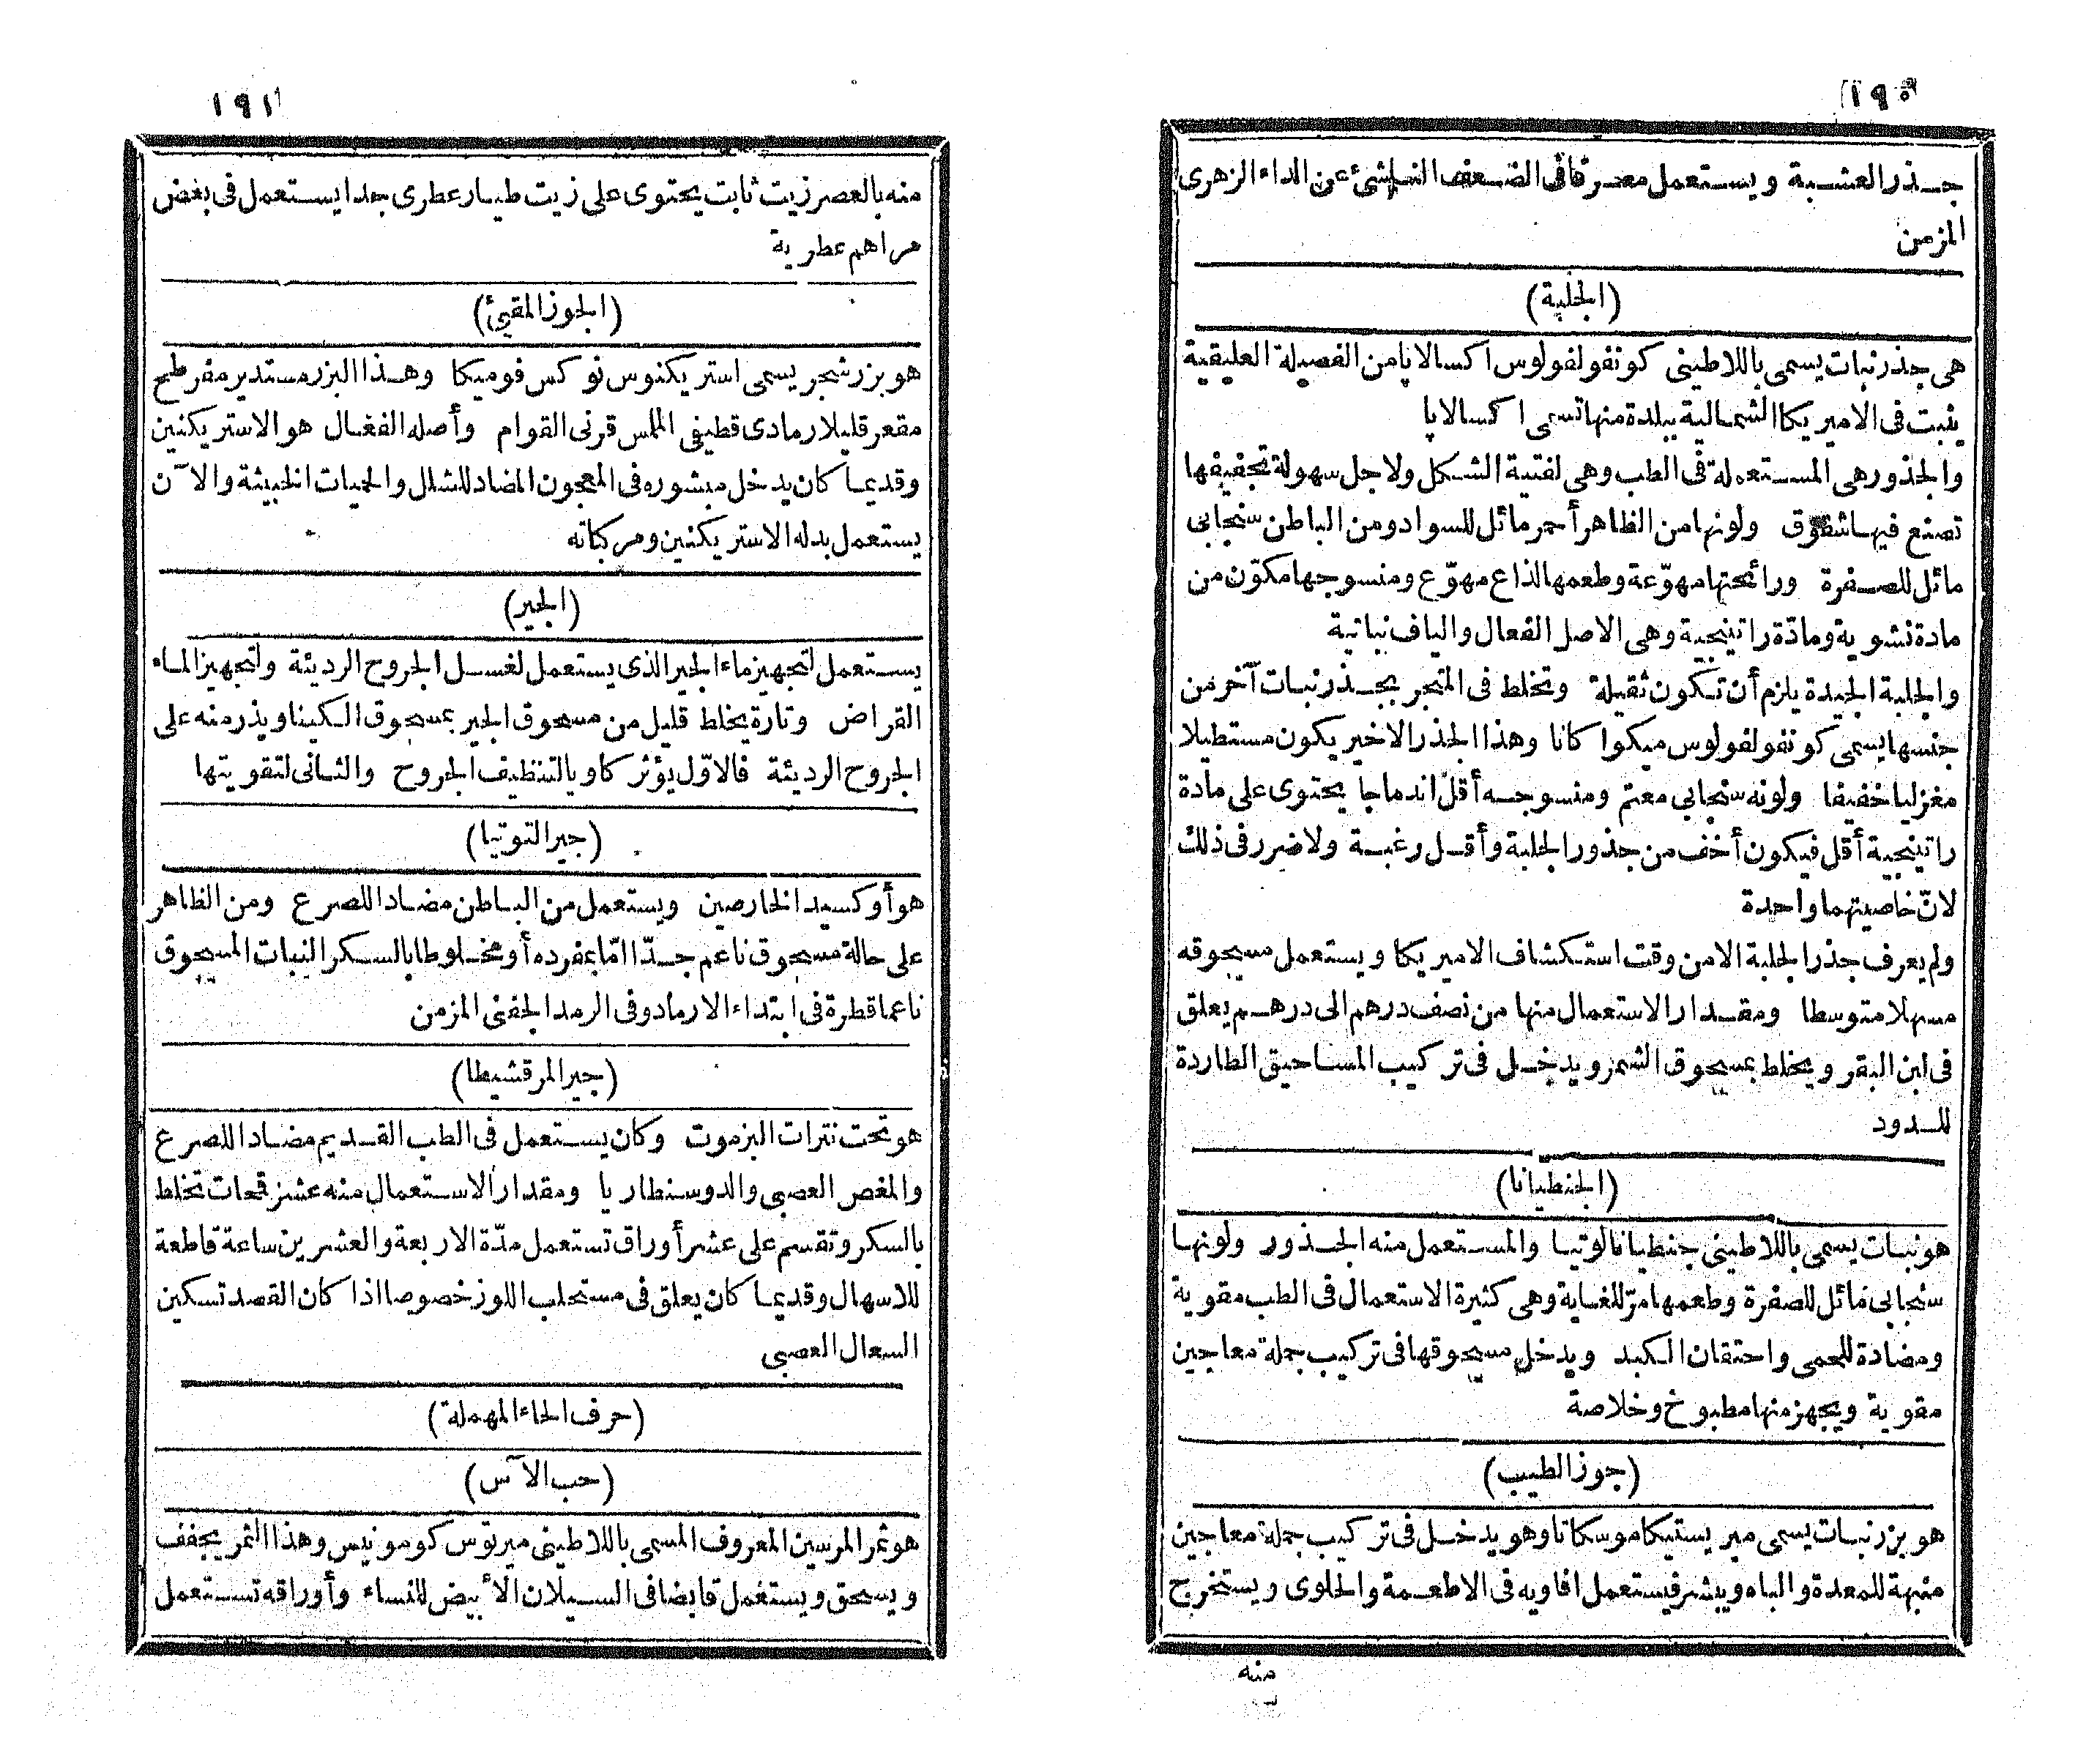 ١٩٠
جذر العشبة ويستعمل معرقا فى الضعف الناشئ عن الداء الزهرى
المزمن
(الجلبة)
هى جذر نبات يسمى باللاطينى كونفولفولوس اكسالاپا من الفصيلة العليقية
ينبت فى الاميريكا الشمالية ببلدة منها تسمى اكسالاپا
والجذور هى المستعملة فى الطب وهى لفتية الشكل ولاجل سهولة تجفيفها
تصنع فيها شقوق ولونها من الظاهر أحمر مائل للسواد ومن الباطن سنجابى
مائل للصفرة ورائحتها مهوّعة وطعمها لذاع مهوّع ومنسوجها مكوّن من
مادة نشوية ومادّة راتينجية وهى الاصل الفعال والياف نباتية
والجلبة الجيدة يلزم أن تكون ثقيلة وتخلط فى المتجر بجذر نبات آخر من
جنسها يسمى كونفولفولوس ميكواكانا وهذا الجذر الاخير يكون مستطيلا
مغزليا خفيفا ولونه سنجابى معتم ومنسوجه أقل اندماجا يحتوى على مادة
راتينجية أقل فيكون أخف من جذور الجلبة وأقل رغبة ولا ضرر فى ذلك
لانّ خاصيتهما واحدة
ولم يعرف جذر الجلبة الا من وقت استكشاف الاميريكا ويستعمل مسحوقه
مسهلا متوسطا ومقدار الاستعمال منها من نصف درهم الى درهم يعلق
فى لبن البقر ويخلط بمسحوق الشمر ويدخل فى تركيب المساحيق الطاردة
للدود
(الجنطيانا)
هو نبات يسمى باللاطينى جنطيانا لوتيا والمستعمل منه الجذور ولونها
سنجابى مائل للصفرة وطعمها مرّ للغاية وهى كثيرة الاستعمال فى الطب مقوية
ومضادة للحمى واحتقان الكبد ويدخل مسحوقها فى تركيب جملة معاجين
مقوية ويجهز منها مطبوخ وخلاصة
(جوز الطيب)
هو بزر نبات يسمى ميريستيكا موسكاتا وهو يدخل فى تركيب جملة معاجين
منبهة للمعدة والباه ويبشر فيستعمل افاويه فى الاطعمة والحلوى ويستخرج
منه
١٩١
منه بالعصر زيت ثابت يحتوى على زيت طيار عطرى جدا يستعمل فى بعض
مراهم عطرية
(الجوز المقيئ)
هو بزر شجر يسمى استريكنوس نوكس فوميكا وهذا البزر مستدير مفرطح
مقعر قليلا رمادى قطيفى الملمس قرنى القوام وأصله الفعال هو الاستريكنين
وقديما كان يدخل مبشوره فى المعجون المضاد للشلل والحميات الخبيثة والآن
يستعمل بدله الاستريكنين ومركباته
(الجير)
يستعمل لتجهيز ماء الجير الذى يستعمل لغسل الجروح الرديئة ولتجهيز الماء
القراض وتارة يخلط قليل من مسحوق الجير بمسحوق الكينا ويذر منه على
الجروح الرديئة فالاوّل يؤثر كاويا لتنظيف الجروح والثانى لتقويتها
(جير التوتيا)
هو أوكسيد الخارصين ويستعمل من الباطن مضادا للصرع ومن الظاهر
على حالة مسحوق ناعم جدّا امّا بمفرده أو مخلوطا بالسكر النبات المسحوق
ناعما قطرة فى ابتداء الارماد وفى الرمد الجفنى المزمن
(جير المرقشيطا)
هو تحت نترات البزموت وكان يستعمل فى الطب القديم مضادا للصرع
والمغص العصبى والدوسنطاريا ومقدار الاستعمال منه عشر قمحات تخلط
بالسكر وتقسم على عشر أوراق تستعمل مدّة الاربعة والعشرين ساعة قاطعة
للاسهال وقديما كان يعلق فى مستحلب اللوز خصوصا اذا كان القصد تسكين
السعال العصبى
(حرف الحاء المهملة)
(حب الآس)
هو ثمر المرسين المعروف المسمى باللاطينى ميرتوس كومونيس وهذا الثمر يجفف
ويسحق ويستعمل قابضا فى السيلان الأبيض للنساء وأوراقه تستعمل